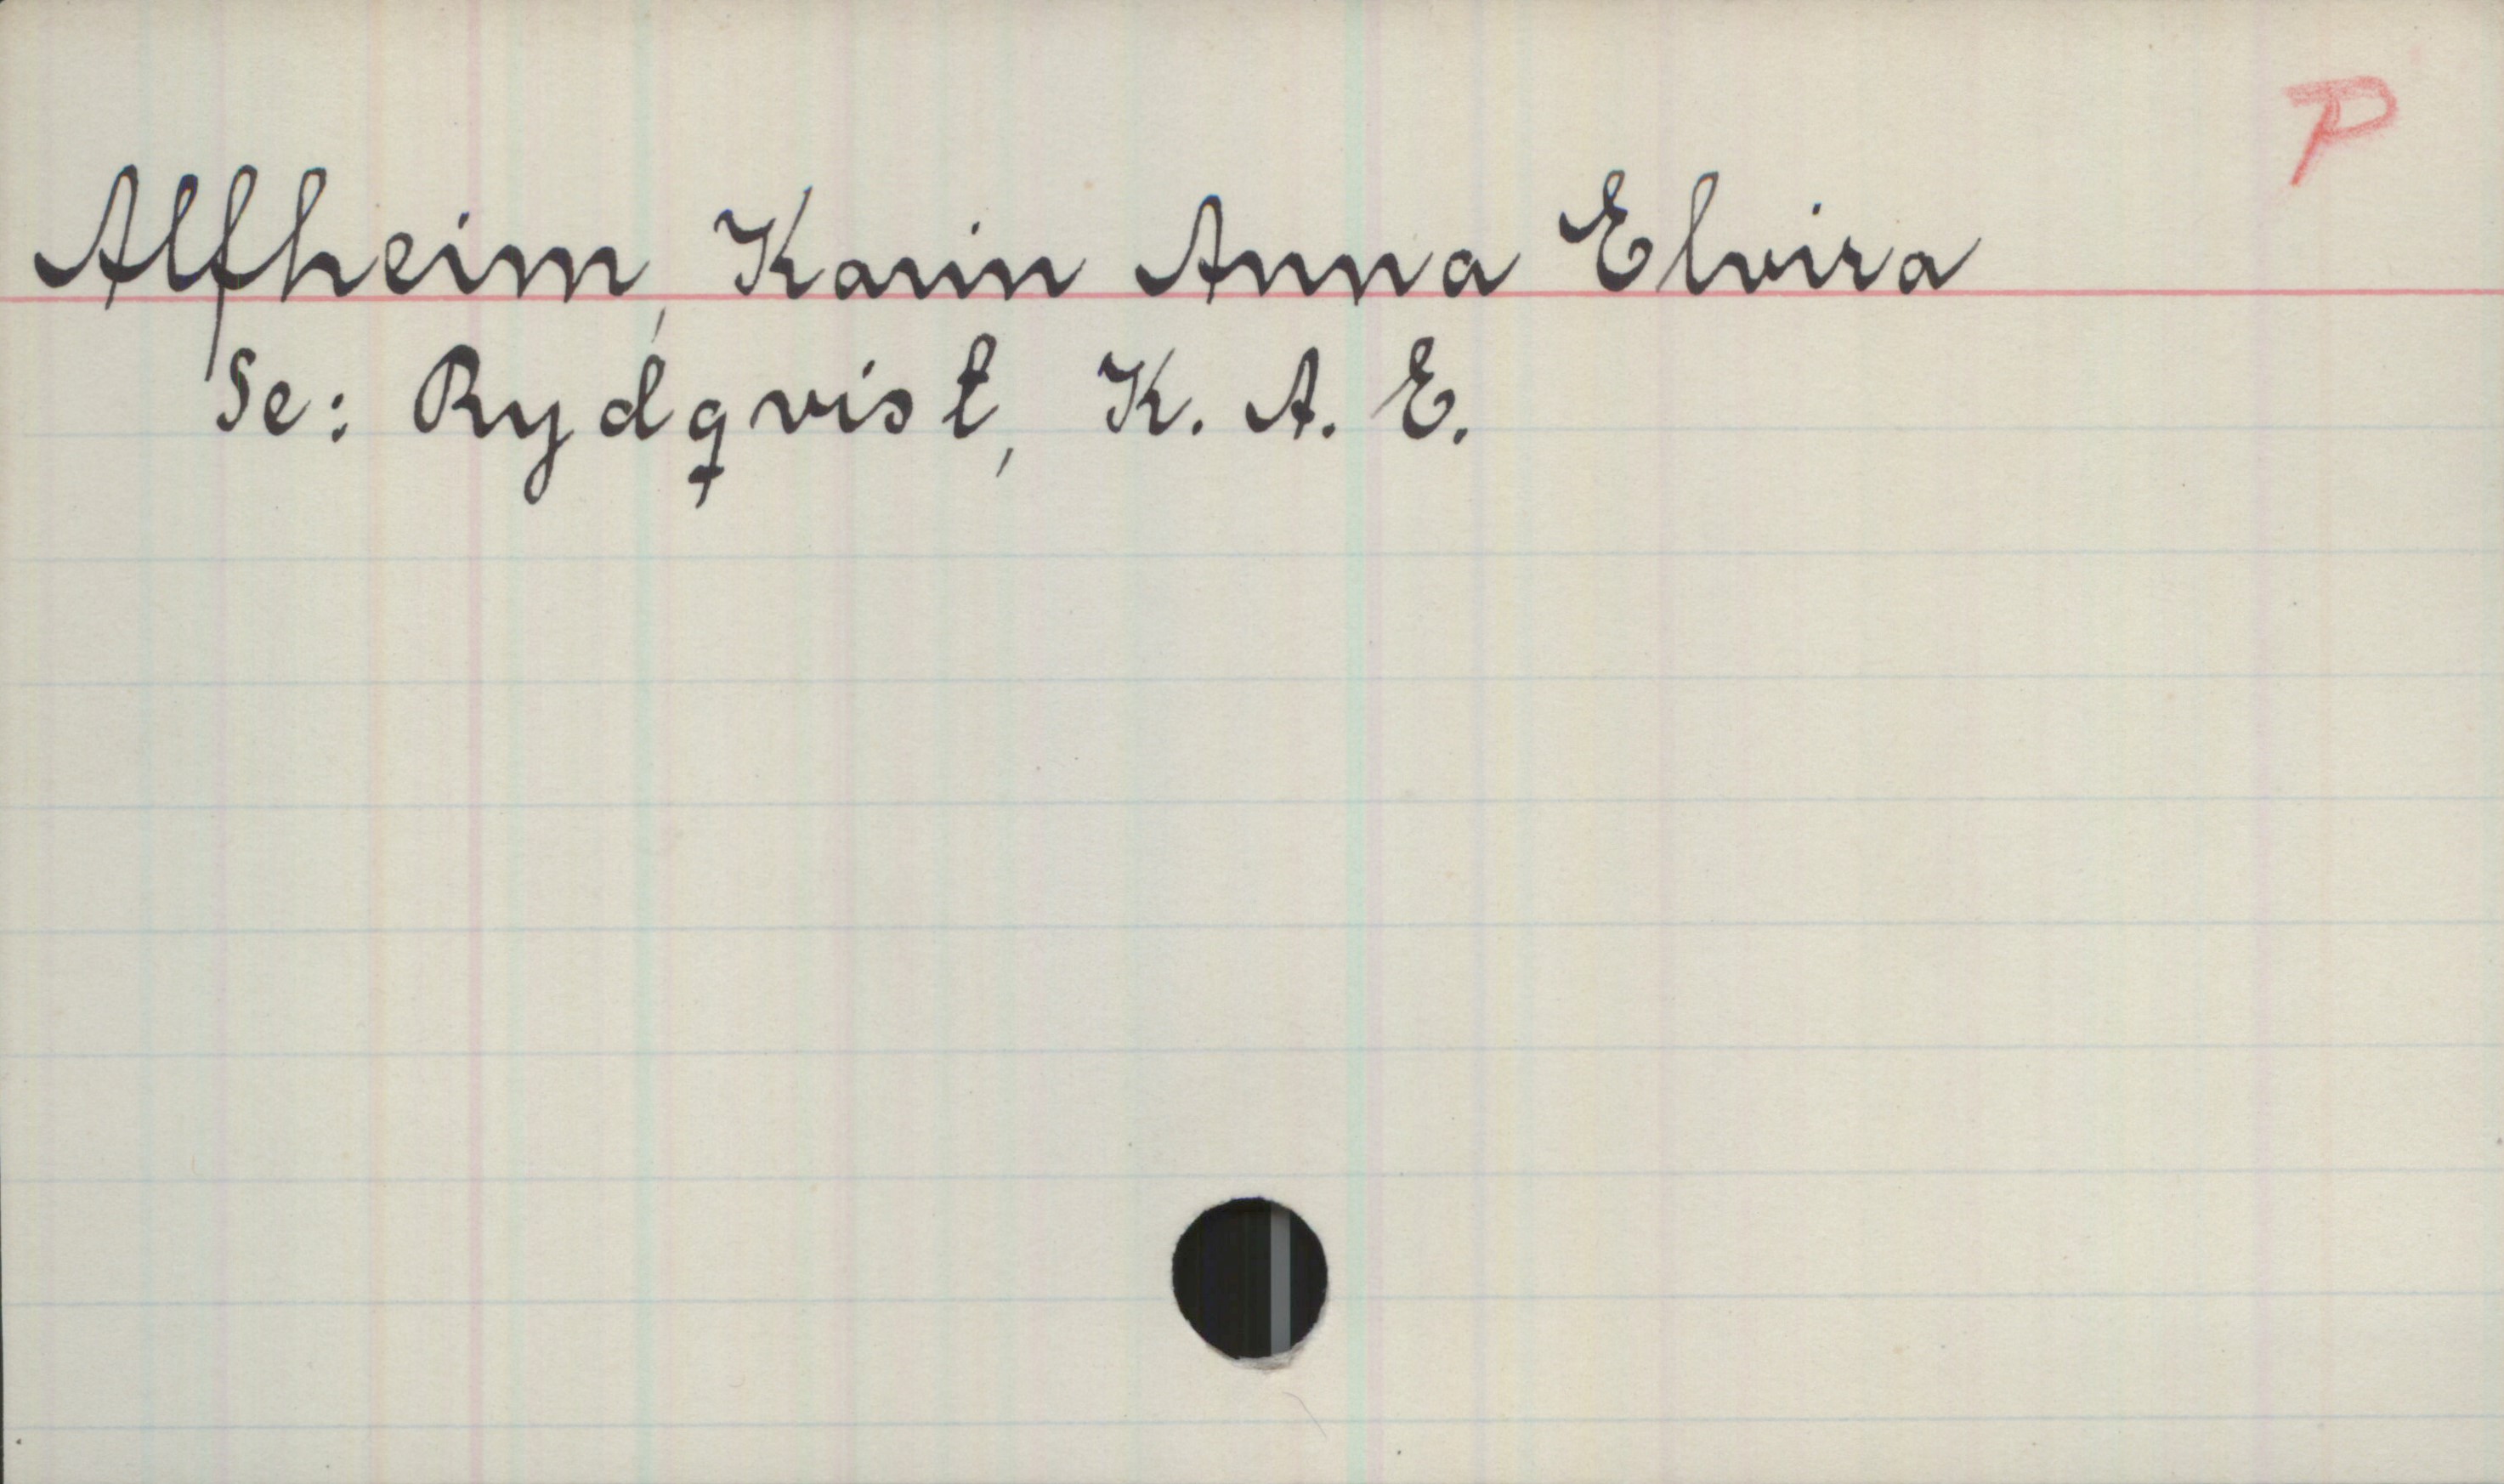 P
Alfheim, Karin Anna Elvira
Se: Rydqvist, K. A. E.